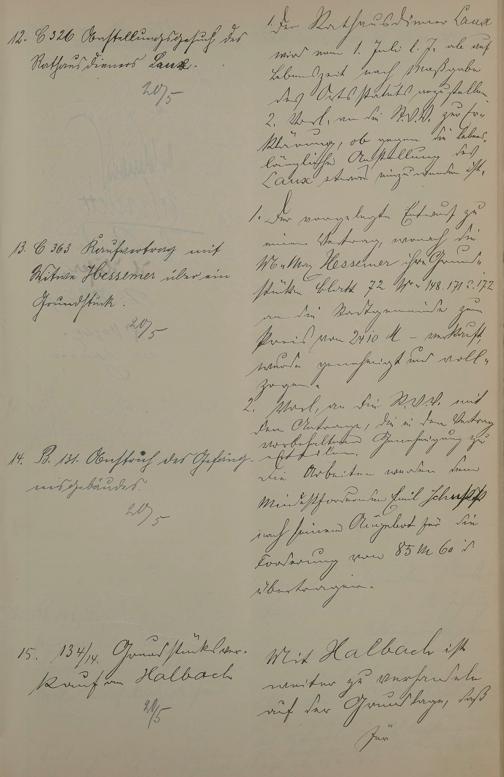 12. C 326 Anstellungsgesuch des
Rathausdieners Laux.
20/5
1. Der Rathausdiener Laux
wird vom 1. Juli l. J. ab auf
Lebenszeit nach Maßgabe
des Ortsstatuts angestellt.
2. Vorl. an die St.V.V. zur Er-
klärung, ob gegen die lebens-
längliche Anstellung des
Laux etwas einzuwenden ist.
13. C 363 Kaufvertrag mit
Witwe Hessemer über ein
Grundstück.
20/5
1. Der vorgelegte Entwurf zu
einem Vertrag, wonach die
Hessemer ihre Grund-
stücke Blatt 72 No 148. 171 172
an die Stadtgemeinde zum
Preis von 2410 M – verkauft,
wurde genehmigt und voll-
zogen.
2. Vorl. an die St.V.V. mit
dem Antrage, die in dem Vertrag
vorbehaltene Genehmigung zu
erteilen.
14. B. 131. Anstrich des Gefäng-
nisgebäudes
20/5
Die Arbeiten werden dem
Mindestfordernden Emil
nach seinem Angebot für die
Forderung von 85 M 60
übertragen.
15. 134/14. Grundstücksver-
kauf an Halbach
20/5
Mit Halbach ist
weiter zu verhandeln
auf der Grundlage, daß
für